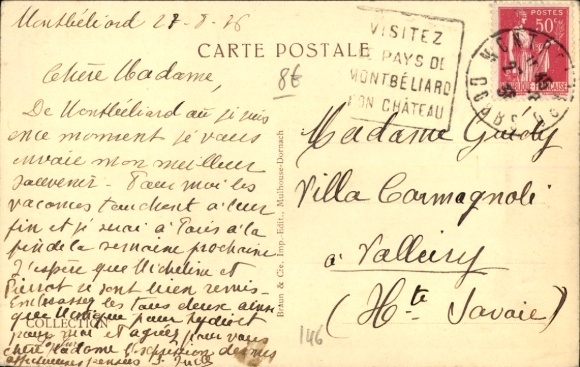 Montbéliard 27-8-36
CARTE POSTALE
8€
Chère Madame,
De Montbéliard où je suis
en ce moment je vous
envoie mon meilleur
souvenir - Pour moi les
vacances touchent à leur
fin et je serai à Paris à la
fin de la semaine prochaine
J'espère que Micheline et
Pierrot se sont bien remis -
Embrassez les tous deux ainsi
que Monique pour
pour moi et agréez pour vous
chère Madame l'expression de mes
affectueuses pensées
COLLECTION
Braun & Cie, Imp.-Edit., Mulhouse-Dornach
VISITEZ
LE PAYS DE
MONTBÉLIARD
SON CHÂTEAU
POSTES
50c
DOUBS
Madame
Villa Carmagnole
à Valleiry
(Hte Savoie)
146